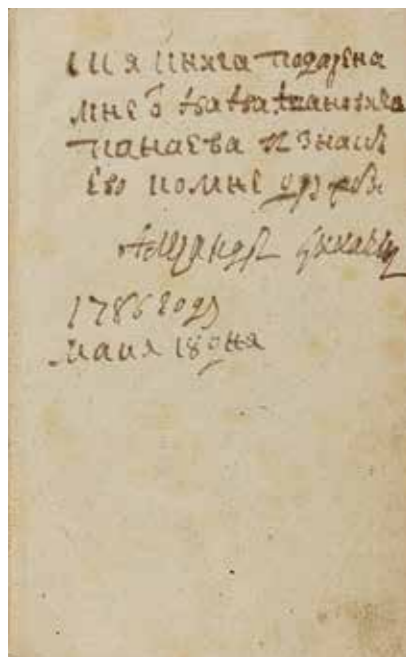 сия книга подарена
мне от Ивана Ивановича
Панаева в знакъ
ево ко мне дружбы
Александръ
1786 году
маия 18 дня